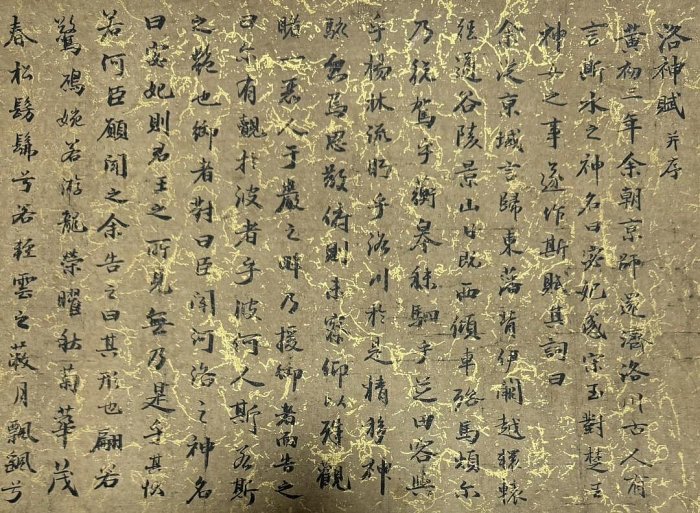 洛神賦 并序
黃初三年余朝京師還濟洛川古人有
言斯水之神名曰宓妃感宋玉對楚王
神女之事遂作斯賦其詞曰
余從京城言歸東藩背伊闕越轘轅
經通谷陵景山日既西傾車殆馬煩尔
乃税駕乎蘅皋秣駟乎芝田容與
乎楊林流眄乎洛川於是精移神
駭忽焉思散俯則未察仰以殊觀
睹一麗人于巖之畔乃援御者而告之
曰尒有覿於彼者乎彼何人斯若斯
之艷也御者對曰臣聞河洛之神名
曰宓妃則君王之所見無乃是乎其狀
若何臣願聞之余告之曰其形也翩若
驚鴻婉若游龍榮曜秋菊華茂
春松髣髴兮若輕雲之蔽月飄颻兮